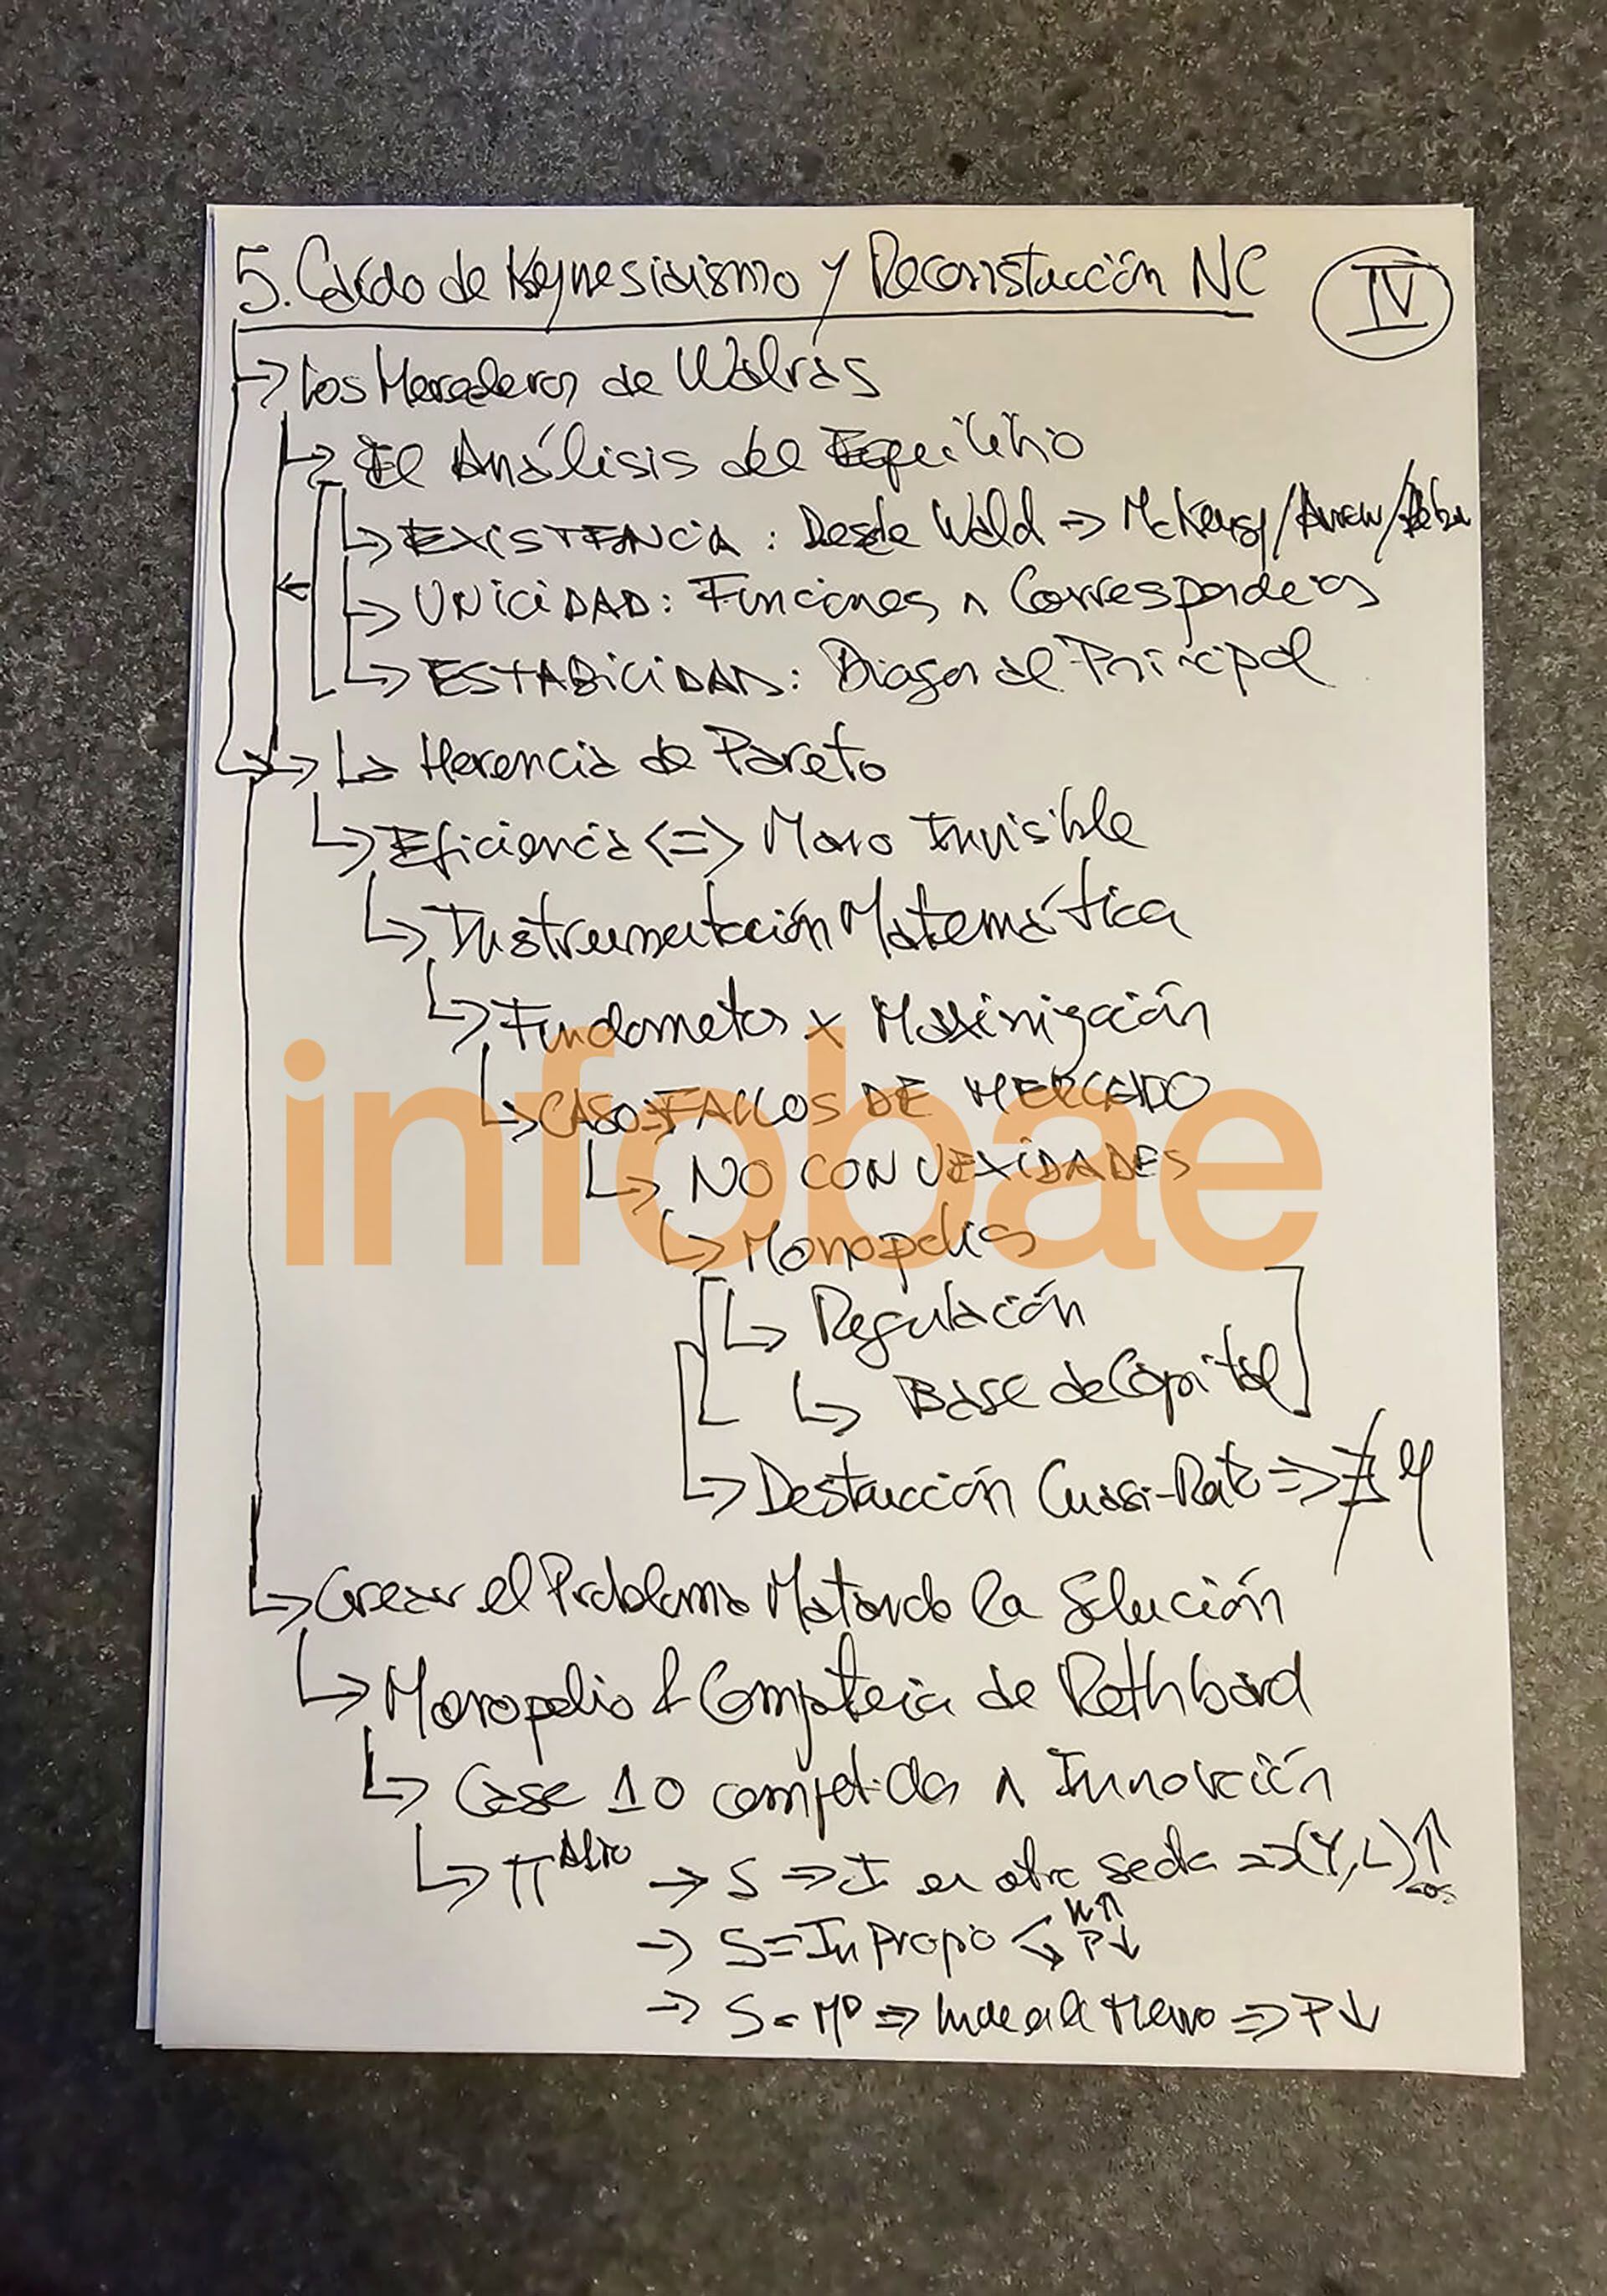 5. Caída de Keynesianismo y Reconstrucción NC
IV
→ Los Herederos de Walras
→ El Análisis del Equilibrio
→ EXISTENCIA: Desde Wald ⇒ McKenzy/Arrow/Debreu
→ UNICIDAD: Funciones ∧ Correspondecias
→ ESTABILIDAD: Diagonal Principal
→ La Herencia de Pareto
→ Eficiencia <=> Mano Invisible
→ Instrumentación Matemática
→ Fundametos x Maximización
→ CASO: FALLOS DE MERCADO
→ NO CONVEXIDADES
→ Monopolios
→ Regulación
→ Base de Capital
→ Destrucción Cuasi-Renta ⇒ ∄ y
→ Crear el Problema Matando la Solución
→ Monopolio & Competecia de Rothbard
→ Case 10 competidor ∧ Innovación
→ π Alto → S ⇒ I en otro sector ⇒ (Y, L)↑
→ S = In Propio W↑ P↓
→ S = Mᴰ ⇒ ⇒ P↓
infobae